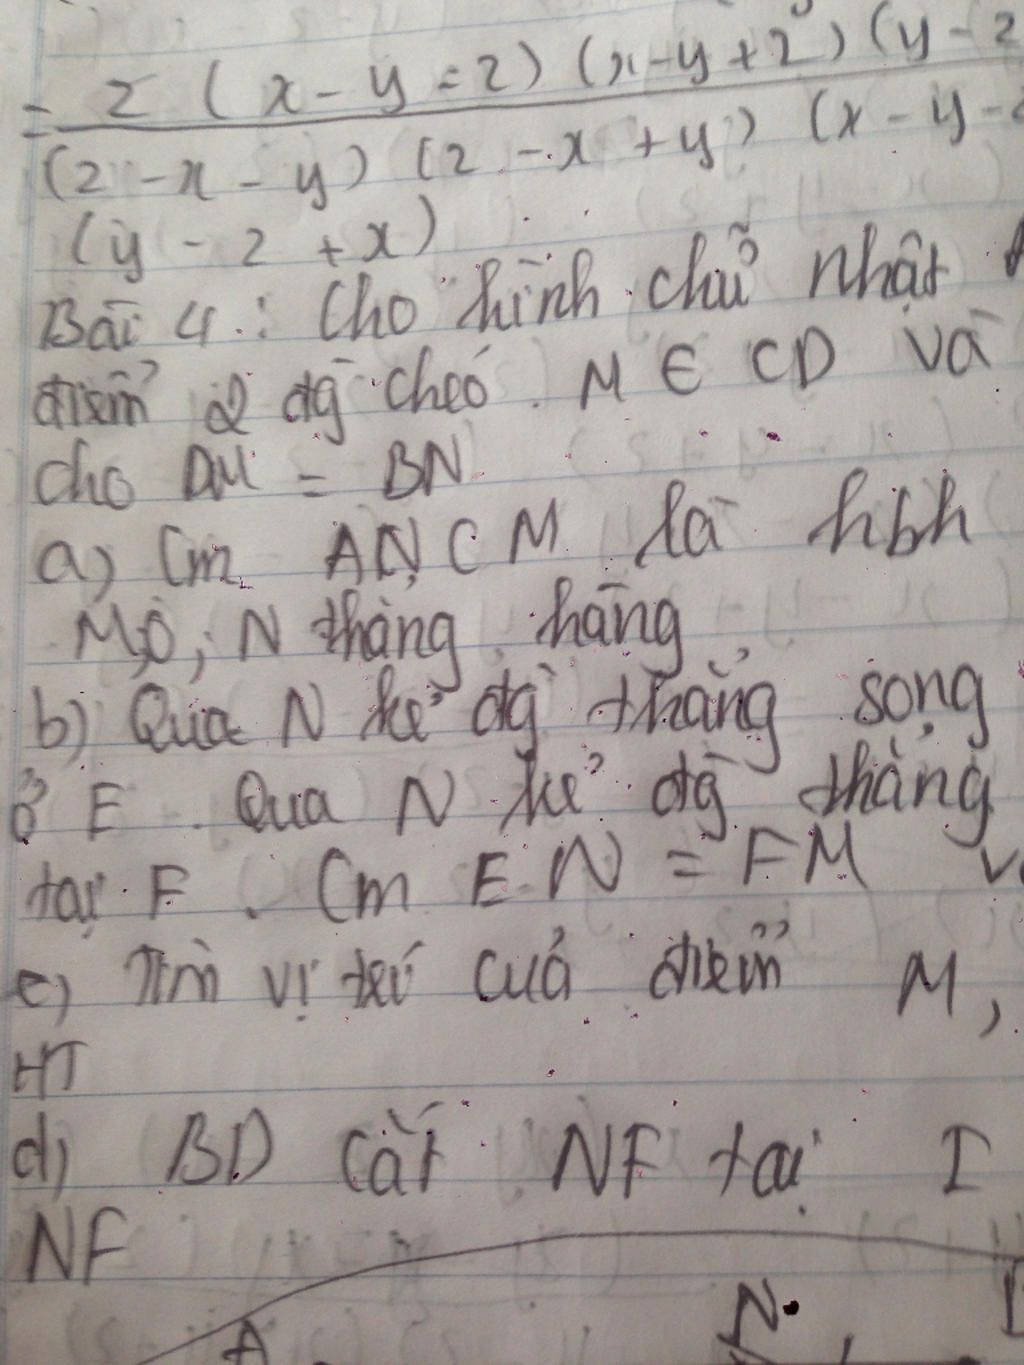 = z (x - y = z) (x - y + z) (y - z
(z - x - y) (z - x + y) (x - y -
(y - z + x)
Bài 4: Cho hình chữ nhật
điểm 2 đg chéo. M ∈ CD và
cho DM = BN
a) Cm ANCM là hbh
M, O, N thẳng hàng
b) Qua N kẻ đg thẳng song
ở E. Qua N kẻ đg thẳng
tại F. Cm EN = FM
c) Tìm vị trí của điểm M,
HT
d) BD cắt NF tại I
NF
N
A